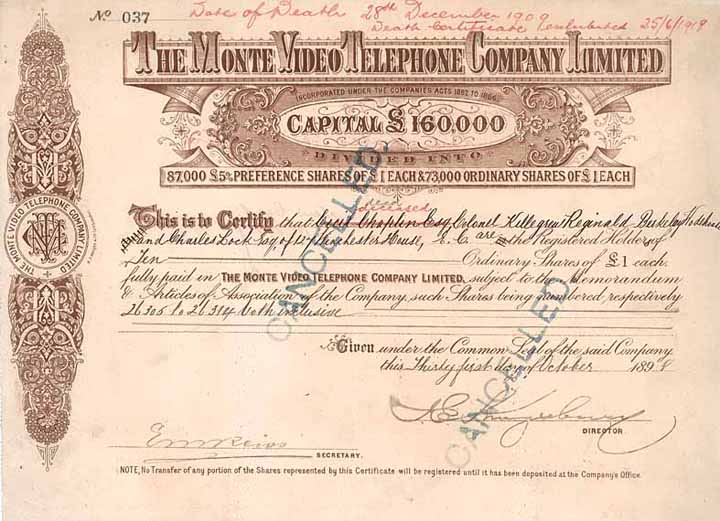 No. 037
Date of Death 28th December 1909
Death Certificate exhibited 25/6/1919
THE MONTE VIDEO TELEPHONE COMPANY LIMITED
INCORPORATED UNDER THE COMPANIES ACTS 1862 TO 1886.
CAPITAL £160,000
DIVIDED INTO
87,000 £5% PREFERENCE SHARES OF £1 EACH & 73,000 ORDINARY SHARES OF £1 EACH
deceased
This is to Certify that Cecil Chaplin Esq, Colonel Killegrew Reginald Berkeley
and Charles Lock Esq of Winchester House, E.C. are the Registered Holders of
Ten Ordinary Shares of £1 each
fully paid in THE MONTE VIDEO TELEPHONE COMPANY LIMITED, subject to the Memorandum
& Articles of Association of the Company, such Shares being numbered, respectively
26305 to 26314 both inclusive
Given under the Common Seal of the said Company
this Thirty first day of October 1898
DIRECTOR.
SECRETARY.
NOTE, No Transfer of any portion of the Shares represented by this Certificate will be registered until it has been deposited at the Company's Office.
CANCELLED.
CANCELLED.
THE MONTE VIDEO TELEPHONE COMPANY LIMITED